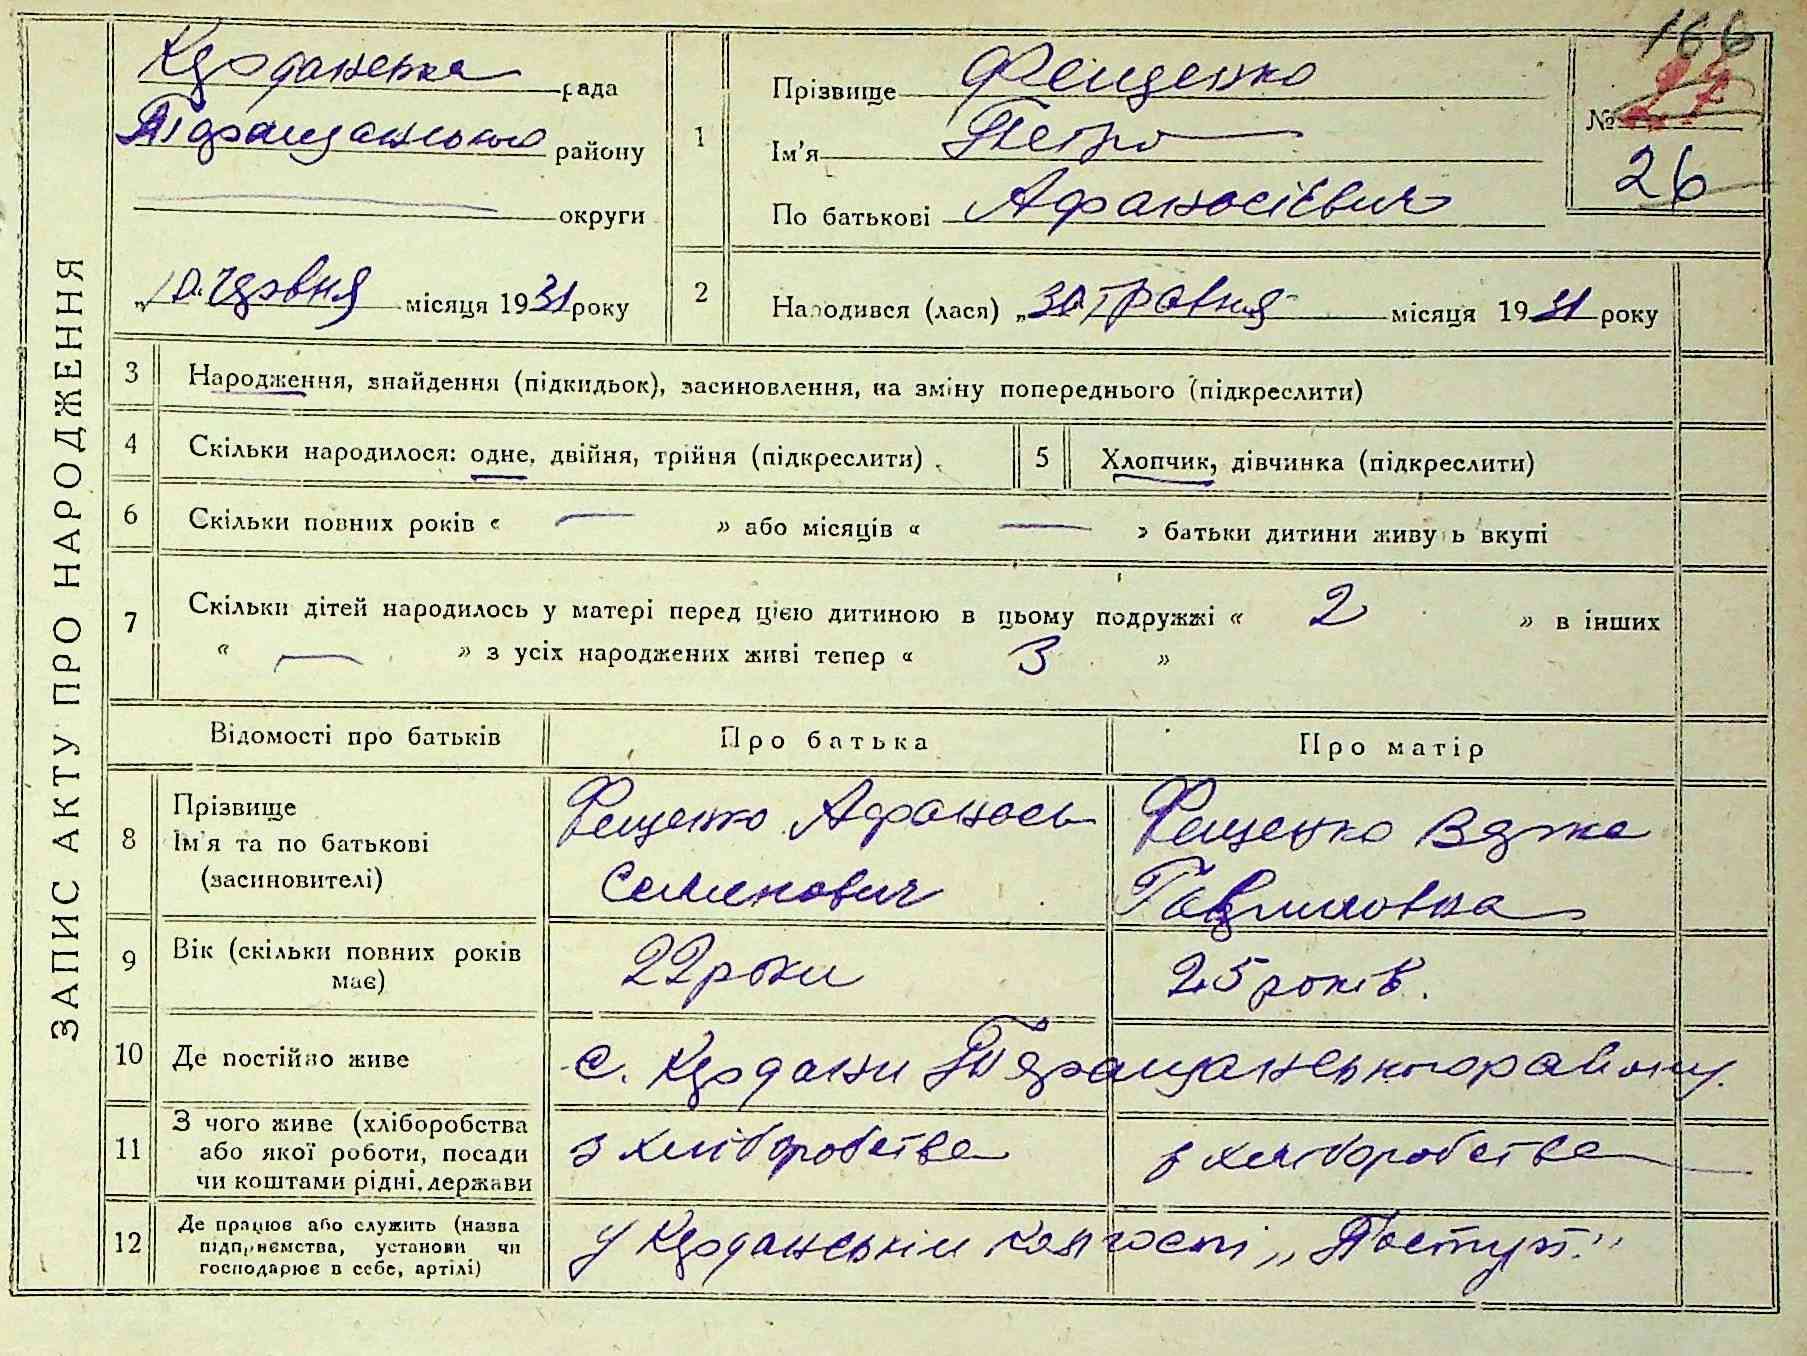 166
24
ЗАПИС АКТУ ПРО НАРОДЖЕННЯ
Кердановська рада
Таращанського району
округи
„10“ червня місяця 1931 року
1
Прізвище Фещенко
Ім'я Петро
По батькові Афанасієвич
№ 26
2
Народився (лася) „30“ травня місяця 1931 року
3 Народження, знайдення (підкидьок), засиновлення, на зміну попереднього (підкреслити)
4 Скільки народилося: одне, двійня, трійня (підкреслити)
5 Хлопчик, дівчинка (підкреслити)
6 Скільки повних років « — » або місяців « — » батьки дитини живуть вкупі
7 Скільки дітей народилось у матері перед цією дитиною в цьому подружжі « 2 » в інших
« — » з усіх народжених живі тепер « 3 »
Відомості про батьків Про батька Про матір
8 Прізвище
Ім'я та по батькові
(засиновителі)
Фещенко Афанась
Семенович
Фещенко
Гавриловна
9 Вік (скільки повних років
має)
22 роки
25 років.
10 Де постійно живе
с. Кердани Таращанського району.
11 З чого живе (хліборобства
або якої роботи, посади
чи коштами рідні, держави
з хліборобства
з хліборобства
12 Де працює або служить (назва
підприємства, установи чи
господарює в себе, артілі)
у колгоспі „Поступ."